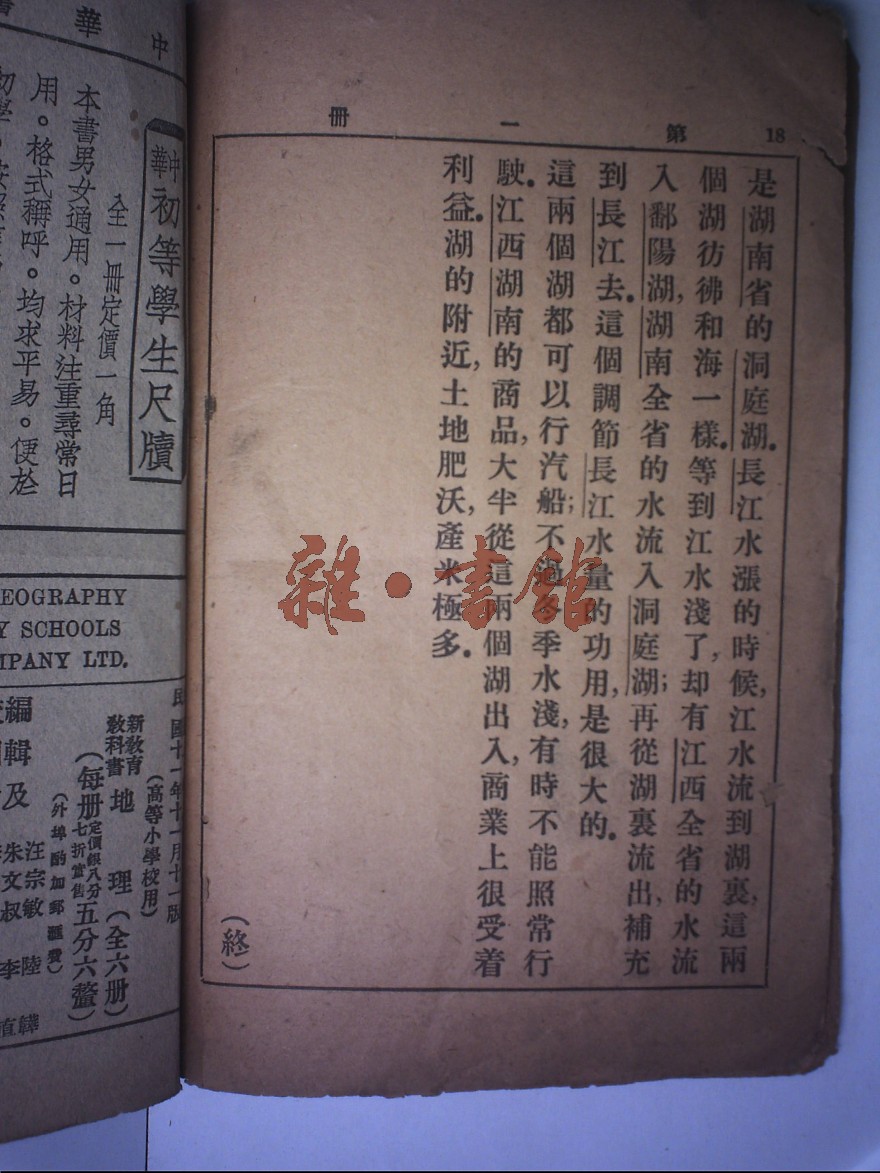 18 第一册
是湖南省的洞庭湖.長江水漲的時候,江水流到湖裏,這兩
個湖彷彿和海一樣.等到江水淺了,却有江西全省的水流
入鄱陽湖,湖南全省的水流入洞庭湖;再從湖裏流出,補充
到長江去.這個調節長江水量的功用,是很大的.
這兩個湖都可以行汽船;不過冬季水淺,有時不能照常行
駛.江西湖南的商品,大半從這兩個湖出入,商業上很受着
利益.湖的附近,土地肥沃,產米極多.
(終)
雜·書館
中華
中華初等學生尺牘
全一冊定價一角
本書男女通用。材料注重尋常日
用。格式稱呼。均求平易。便於
EOGRAPHY
Y SCHOOLS
MPANY LTD.
民國十一年十一月十一版
(高等小學校用)
新教育教科書地理(全六册)
(每册定價銀八分七折實售五分六釐)
(外埠酌加郵滙費)
編輯及
汪宗敏 陸
朱文叔 李